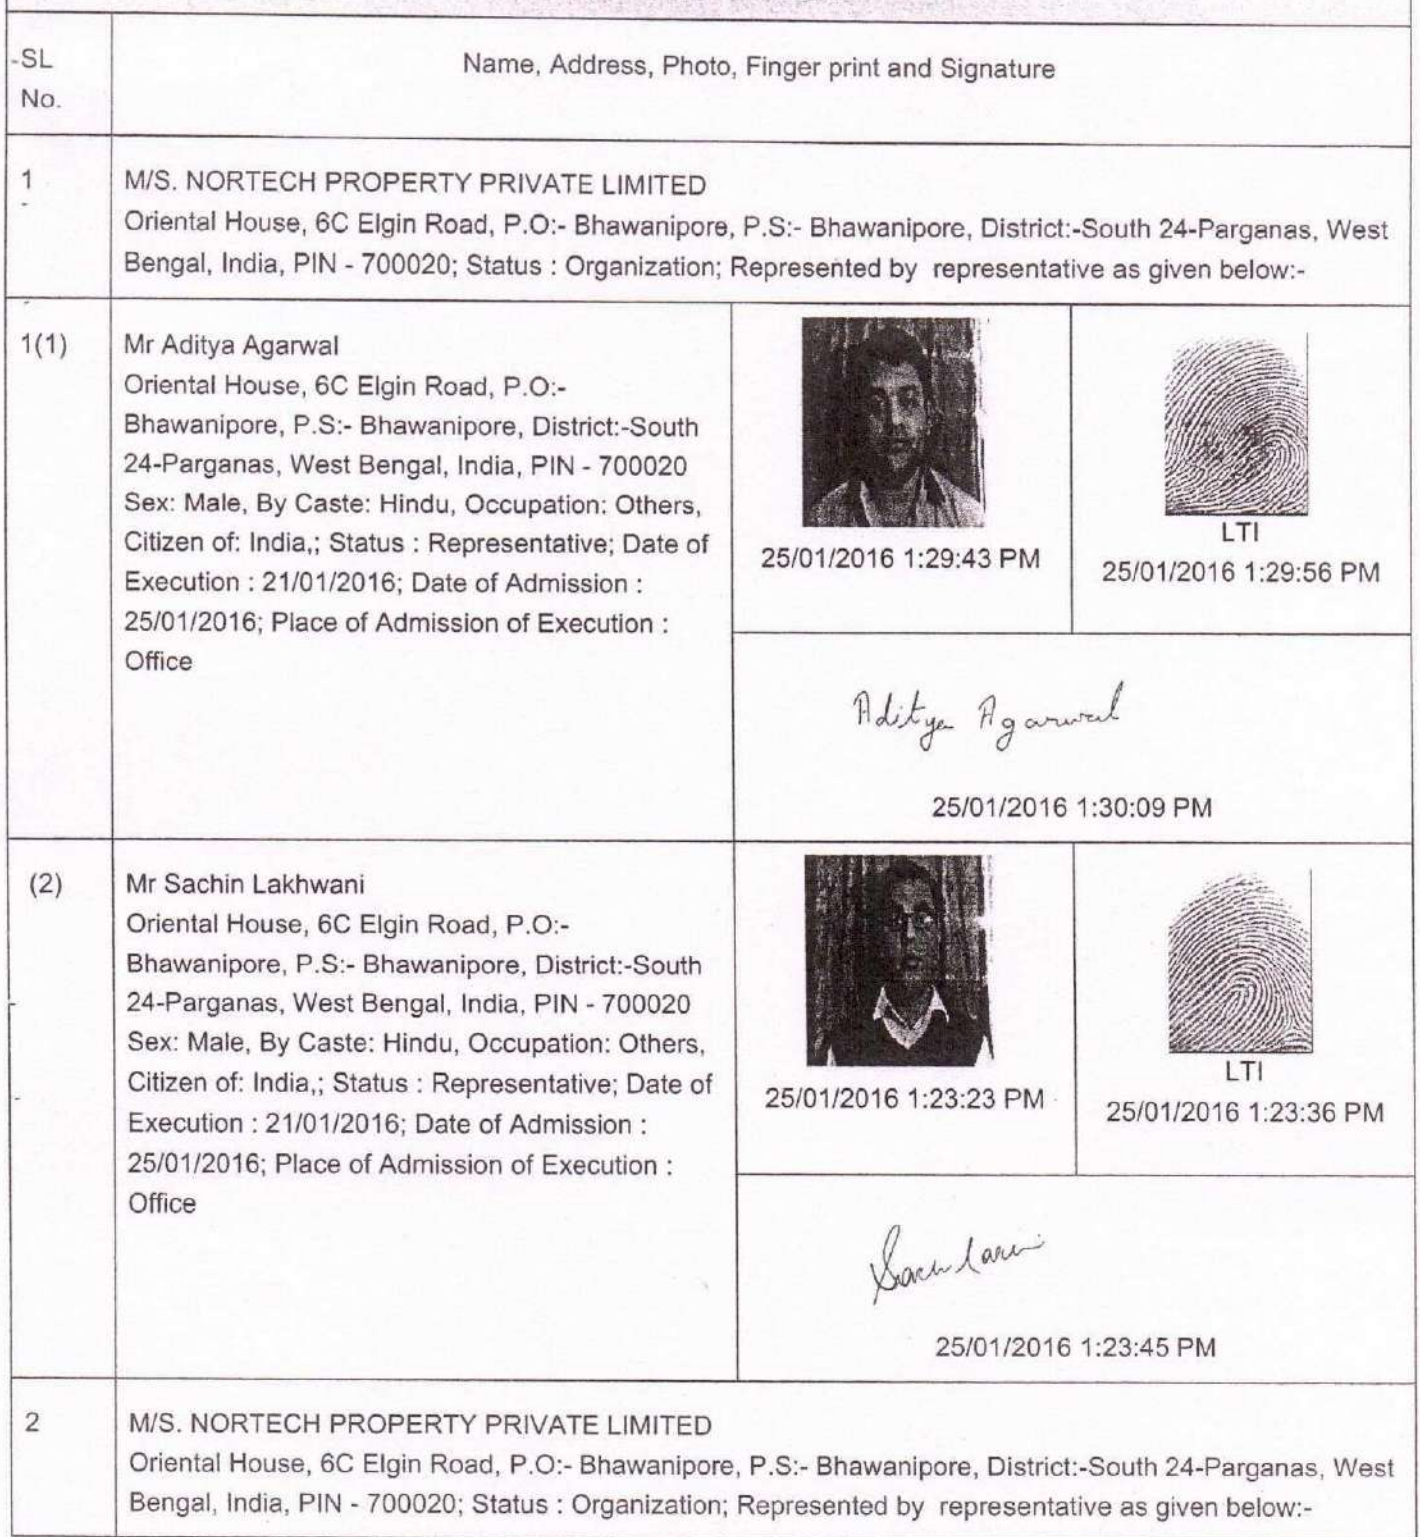 -SL
No.
Name, Address, Photo, Finger print and Signature
1
M/S. NORTECH PROPERTY PRIVATE LIMITED
Oriental House, 6C Elgin Road, P.O:- Bhawanipore, P.S:- Bhawanipore, District:-South 24-Parganas, West
Bengal, India, PIN - 700020; Status : Organization; Represented by representative as given below:-
1(1)
Mr Aditya Agarwal
Oriental House, 6C Elgin Road, P.O:-
Bhawanipore, P.S:- Bhawanipore, District:-South
24-Parganas, West Bengal, India, PIN - 700020
Sex: Male, By Caste: Hindu, Occupation: Others,
Citizen of: India,; Status : Representative; Date of
Execution : 21/01/2016; Date of Admission :
25/01/2016; Place of Admission of Execution :
Office
25/01/2016 1:29:43 PM
LTI
25/01/2016 1:29:56 PM
Aditya Agarwal
25/01/2016 1:30:09 PM
(2)
Mr Sachin Lakhwani
Oriental House, 6C Elgin Road, P.O:-
Bhawanipore, P.S:- Bhawanipore, District:-South
24-Parganas, West Bengal, India, PIN - 700020
Sex: Male, By Caste: Hindu, Occupation: Others,
Citizen of: India,; Status : Representative; Date of
Execution : 21/01/2016; Date of Admission :
25/01/2016; Place of Admission of Execution :
Office
25/01/2016 1:23:23 PM
LTI
25/01/2016 1:23:36 PM
25/01/2016 1:23:45 PM
2
M/S. NORTECH PROPERTY PRIVATE LIMITED
Oriental House, 6C Elgin Road, P.O:- Bhawanipore, P.S:- Bhawanipore, District:-South 24-Parganas, West
Bengal, India, PIN - 700020; Status : Organization; Represented by representative as given below:-